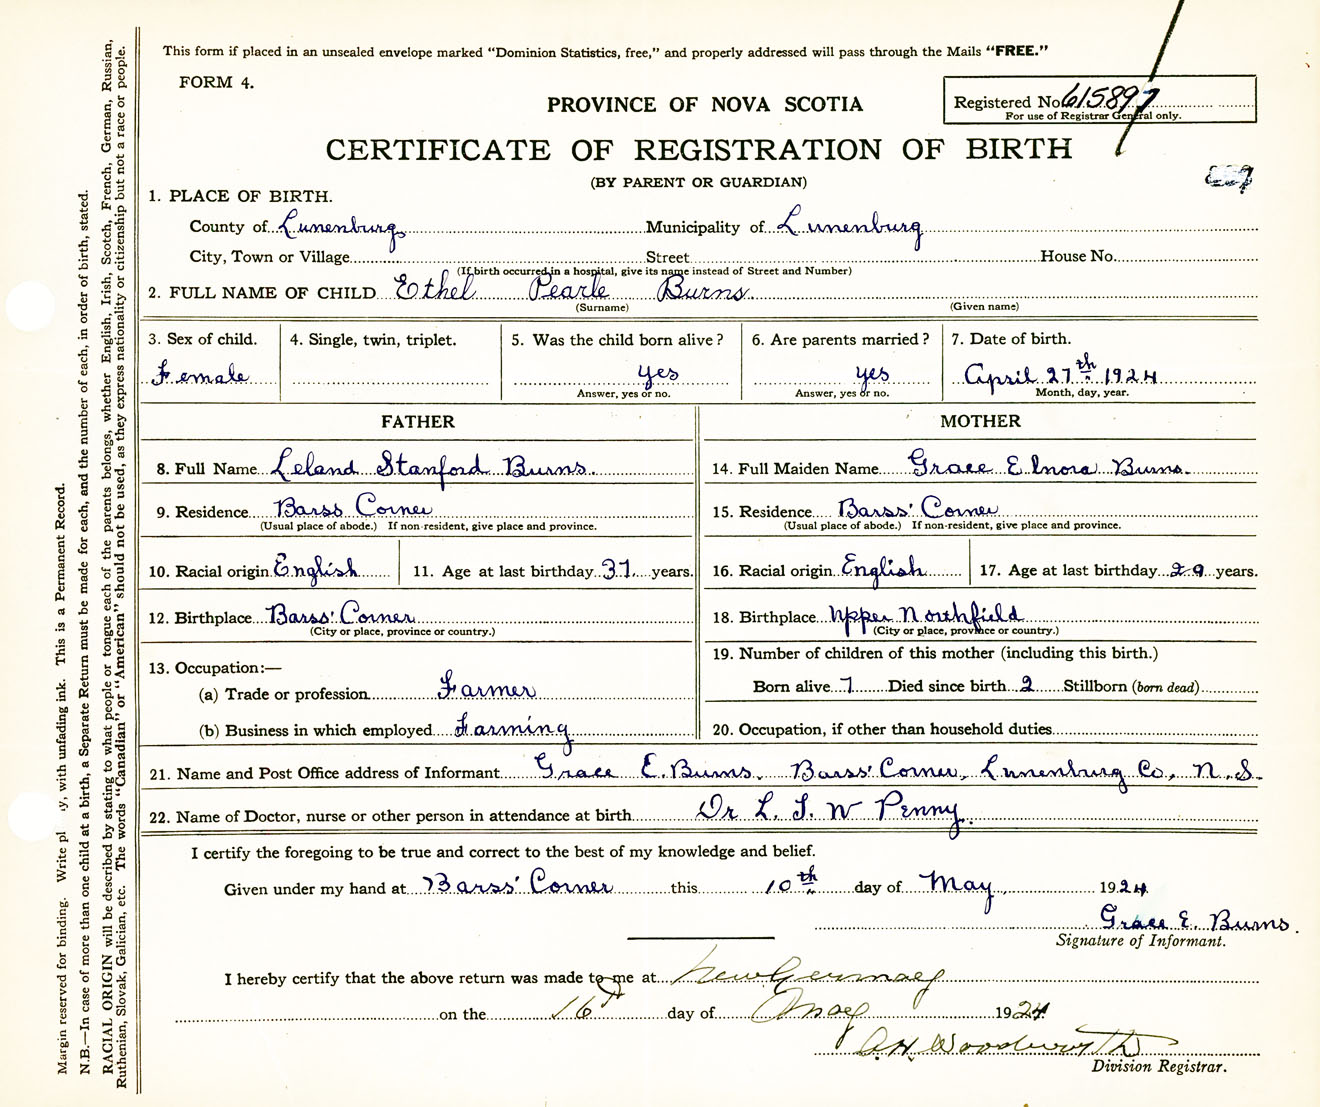 This form if placed in an unsealed envelope marked "Dominion Statistics, free," and properly addressed will pass through the Mails "FREE."
FORM 4.
Registered No. 615897
For use of Registrar General only.
PROVINCE OF NOVA SCOTIA
CERTIFICATE OF REGISTRATION OF BIRTH
(BY PARENT OR GUARDIAN)
1. PLACE OF BIRTH.
County of Lunenburg Municipality of Lunenburg
City, Town or Village Street House No.
(If birth occurred in a hospital, give its name instead of Street and Number)
2. FULL NAME OF CHILD Ethel Pearle Burns.
(Surname) (Given name)
3. Sex of child. 4. Single, twin, triplet. 5. Was the child born alive? 6. Are parents married? 7. Date of birth.
Female yes yes April 27th 1924
Answer, yes or no. Answer, yes or no. Month, day, year.
FATHER MOTHER
8. Full Name Leland Stanford Burns. 14. Full Maiden Name Grace Elnora Burns.
9. Residence Barss Corner 15. Residence Barss' Corner
(Usual place of abode.) If non-resident, give place and province. (Usual place of abode.) If non-resident, give place and province.
10. Racial origin English 11. Age at last birthday 37 years. 16. Racial origin English 17. Age at last birthday 29 years.
12. Birthplace Barss' Corner 18. Birthplace Upper Northfield
(City or place, province or country.) (City or place, province or country.)
19. Number of children of this mother (including this birth.)
13. Occupation:—
(a) Trade or profession Farmer Born alive 7 Died since birth 2 Stillborn (born dead)
(b) Business in which employed Farming 20. Occupation, if other than household duties
21. Name and Post Office address of Informant Grace E. Burns, Barss' Corner, Lunenburg Co, N.S.
22. Name of Doctor, nurse or other person in attendance at birth Dr L. S. W Penny.
I certify the foregoing to be true and correct to the best of my knowledge and belief.
Given under my hand at Barss' Corner this 10th day of May, 1924
Grace E. Burns.
Signature of Informant.
I hereby certify that the above return was made to me at New Germany
on the 16th day of May 1924
A.H. Woodworth
Division Registrar.
Margin reserved for binding. Write pl y, with unfading ink. This is a Permanent Record.
N.B.—In case of more than one child at a birth, a Separate Return must be made for each, and the number of each, in order of birth, stated.
RACIAL ORIGIN will be described by stating to what people or tongue each of the parents belongs, whether English, Irish, Scotch, French, German, Russian,
Ruthenian, Slovak, Galician, etc. The words "Canadian" or "American" should not be used, as they express nationality or citizenship but not a race or people.